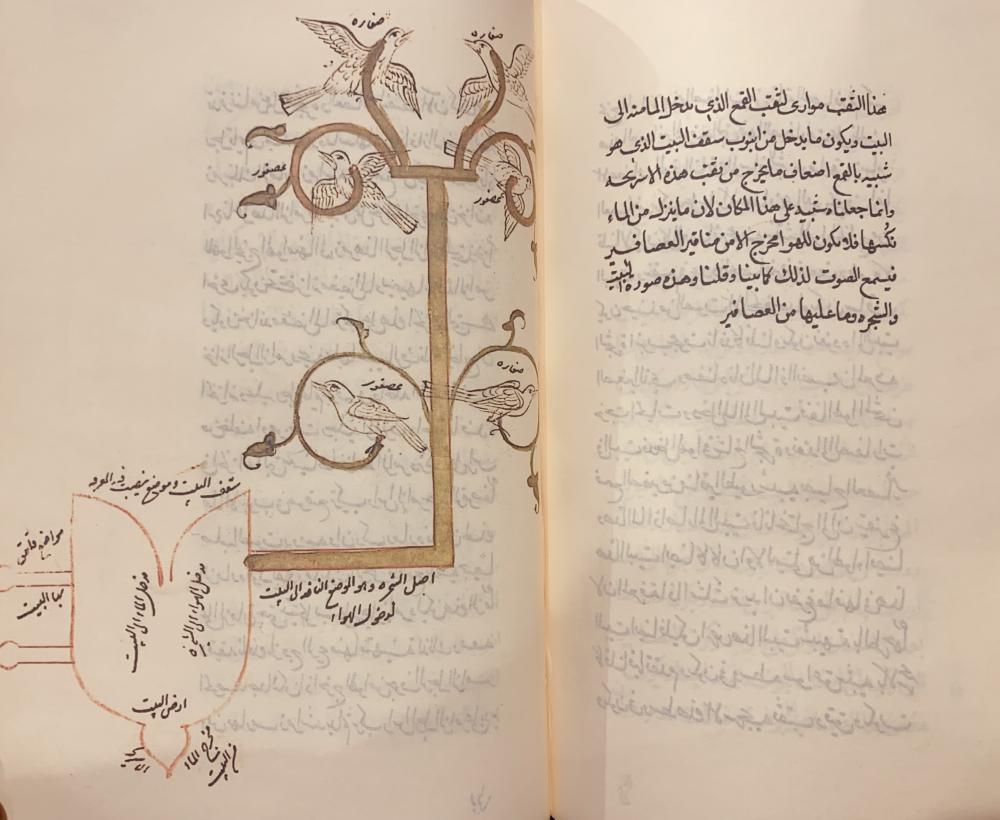 هذا الثقب موازى لثقب القمع الذي يدخل الما منه الى
البيت ويكون ما يدخل من انبوب سقف البيت الذى هو
شبيه بالقمع اضعاف ما يخرج من ثقب هذه
وانما جعلناه شبيه على هذا المكان لان ما ينزل من الماء
فلا يكون للهوا مخرج الا من مناقير العصافير
فيسمع الصوت لذلك كما بينا وقلنا وهذه صورة البيت
والشجره وما عليها من العصافير
صفاره
صفاره
عصفور
عصفور
عصفور
صفاره
سقف البيت وموضع
اصل الشجره وهو الموضع النافد الى البيت
لدخول الهواء
مدخل الماء الى البيت
مدخل الهواء الى الشجره
ارض البيت
مخرج الماء
من البيت